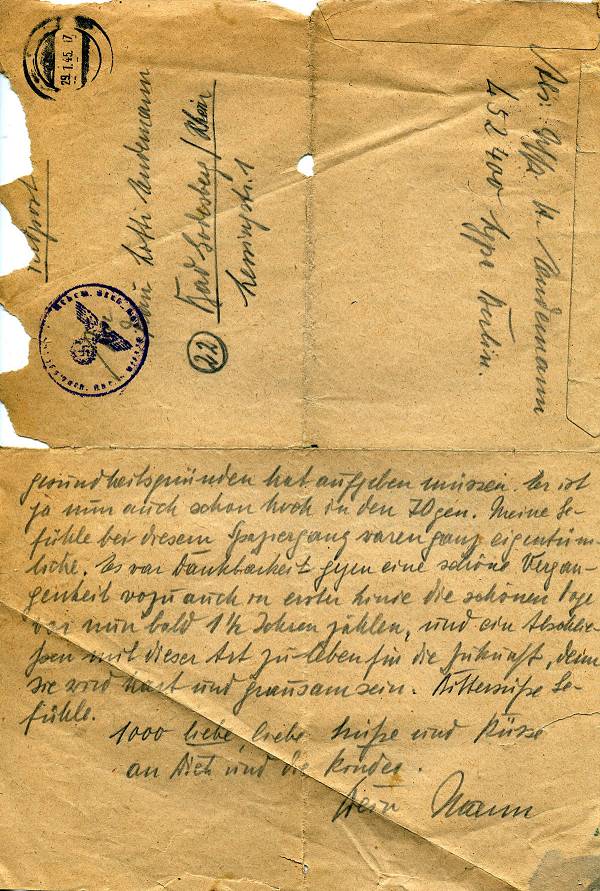 29.1.45.17
Feldpost
Frau Lotti Andemann
(22) Bad Godesberg / Rhein
Lessingstr. 1
Abs:
452400 Lgpa Berlin.
gesundheitsgründen hat aufgeben müssen. Er ist
ja nun auch schon hoch in den 70gen. Meine Ge-
fühle bei diesem Spaziergang waren ganz eigentüm-
liche. Es war Dankbarkeit gegen eine schöne Vergan-
genheit wozu auch in erster Linie die schönen Tage
vor nun bald 1½ Jahren zählen, und ein Abschlie-
ßen mit dieser Art zu leben für die Zukunft, denn
sie wird hart und grausam sein. Bittersüße Ge-
fühle.
1000 liebe, liebe Grüße und Küsse
an Dich und die Kinder.
Dein Mann